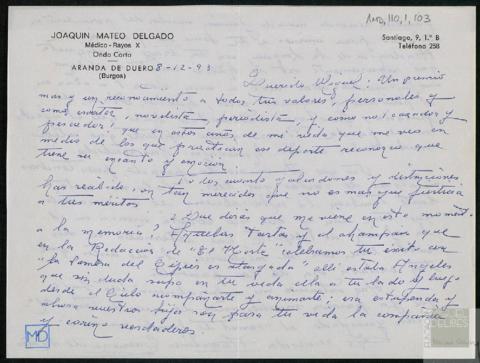 AMD, 110, 1, 103
JOAQUIN MATEO DELGADO
Médico - Rayos X
Onda Corta
ARANDA DE DUERO 8-12-93
(Burgos)
Santiago, 9, 1.º B
Teléfono 258
Querido Miguel: Un premio
mas y un reconocimiento a todos tus valores, personales y
como escritor, novelista, periodista, y como no! cazador y
pescador! que en estos años de mi vida que me veo en
medio de los que practican ese deporte reconozco que
tiene su encanto y emoción.
Todos cuanto galardones y distinciones
has recibido, son tan merecidos que no es mas que justicia
a tus méritos
¿Que dirás que me viene en este momento
a la memoria? Aquellas tartas y el champan que
en la Redacción de "El Norte" celebramos tu éxito con
"La sombra del Ciprés es alargada" allí estaba Angeles
que sin duda supo en tu vida ella a tu lado y luego
desde el Cielo acompañarte y animarte; era estupenda y
ahora vuestros hijos son para tu vida la compañía
y cariño verdaderos.
MD
DELIBES